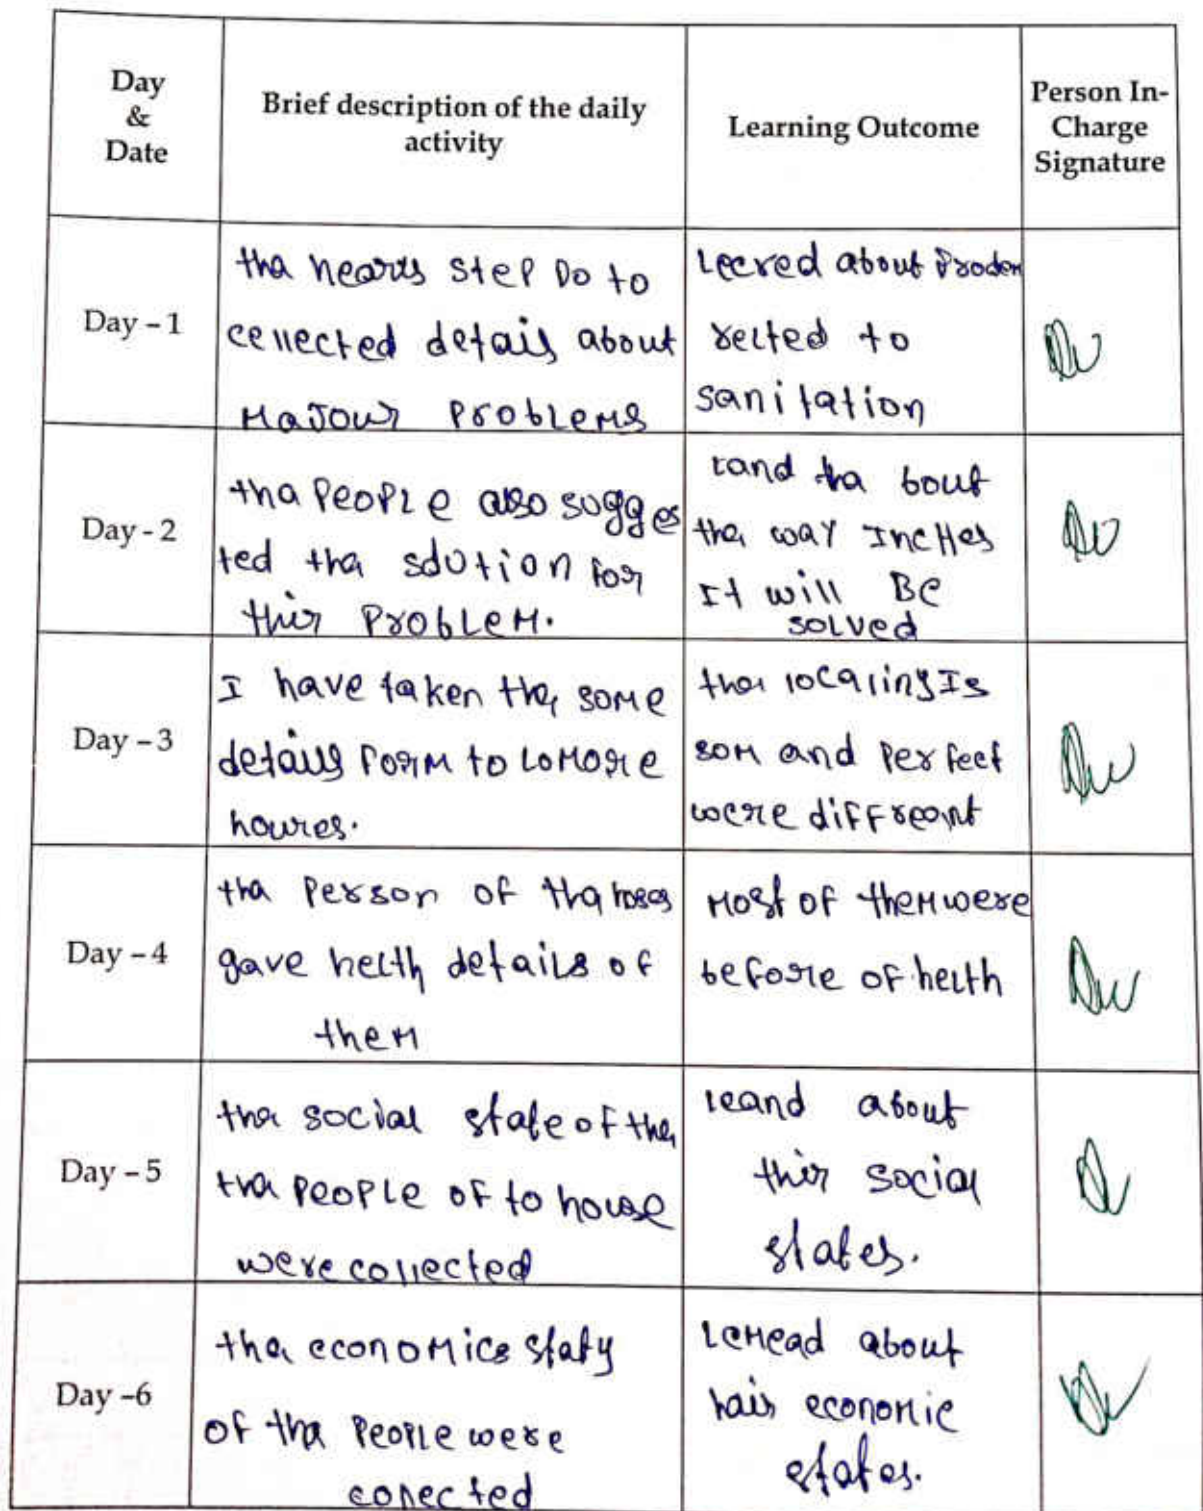 Day
&
Date
Brief description of the daily
activity
Learning Outcome
Person In-
Charge
Signature
Day - 1
tha nearts step Do to
cellected detais about
Majour Problems
Lecred about Proden
relted to
sanitation
Day - 2
tha People also sugges
ted tha sdution for
thir Problem.
tand tha bout
the way Inches
It will Be
solved
Day - 3
I have taken the some
details form to
houres.
the Is
som and Perfect
were diffreant
Day - 4
tha Person of tha hoses
gave helth details of
them
Most of them were
before of helth
Day - 5
the social state of the
tha People of to house
were collected
leand about
thir social
states.
Day -6
tha economics staty
of tha People were
conected
about
hair economic
states.